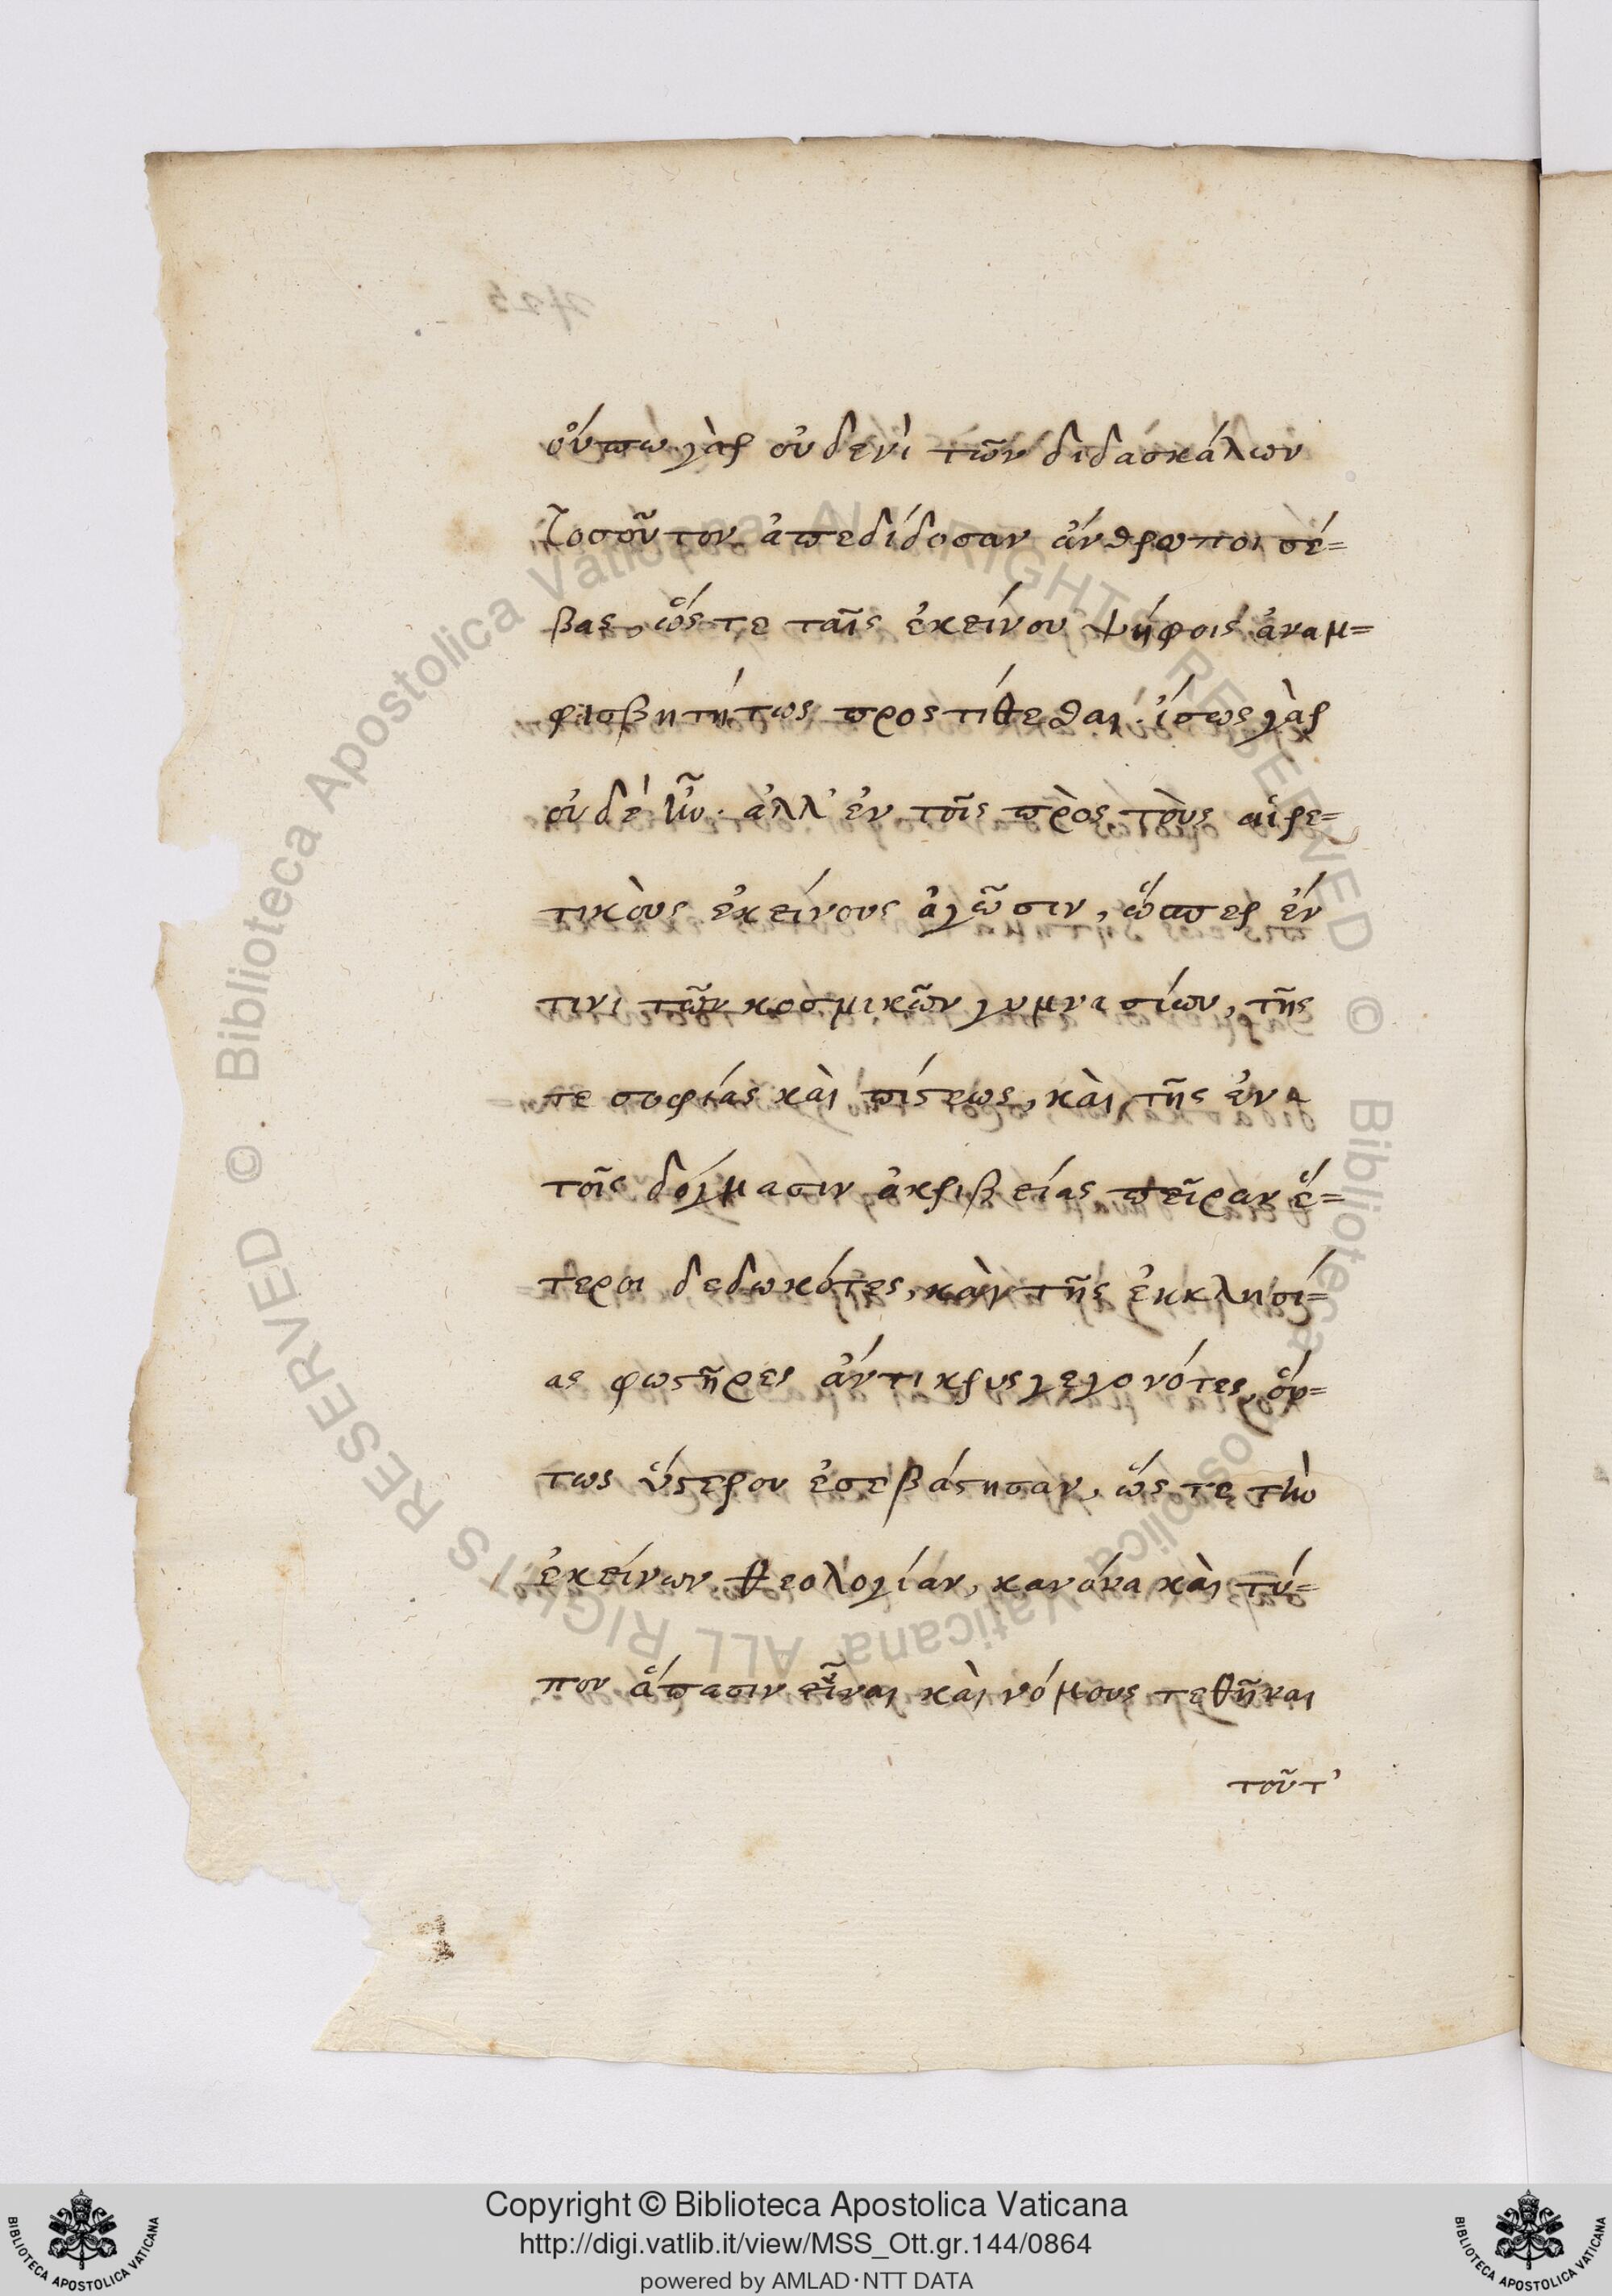 οὔπω γὰρ οὐδενὶ τῶν διδασκάλων
τοσοῦτον ἀπεδίδοσαν ἄνθρωποι σέ=
βας, ὥς τε ταῖς ἐκείνου ψήφοις ἀναμ=
φισβητήτως προςτίθεσθαι· ἴσως γὰρ
οὐδέ ἦν· ἀλλ' ἐν τοῖς πρὸς τοὺς αἱρε=
τικοὺς ἐκείνους ἀγῶσιν, ὥσπερ ἔν
τινι τῶν κοσμικῶν γυμνασίων, τῆς
τε σοφίας καὶ πίστεως, καὶ τῆς ἐν
τοῖς δόγμασιν ἀκριβείας πεῖραν ἕ=
τεροι δεδωκότες, καὶ τῆς ἐκκλησί=
ας φωστῆρες ἄντικρυς γεγονότες, οὕ=
τως ὕστερον ἐσεβάστησαν, ὥς τε τὴν
ἐκείνων θεολογίαν, κανόνα καὶ τύ=
πον ἅπασιν εἶναι καὶ νόμους τεθῆναι
τοῦτ'
© Biblioteca Apostolica Vaticana ALL RIGHTS RESERVED © Biblioteca Apostolica Vaticana ALL RIGHTS RESERVED
Copyright © Biblioteca Apostolica Vaticana
http://digi.vatlib.it/view/MSS_Ott.gr.144/0864
powered by AMLAD·NTT DATA
BIBLIOTECA APOSTOLICA VATICANA
BIBLIOTECA APOSTOLICA VATICANA